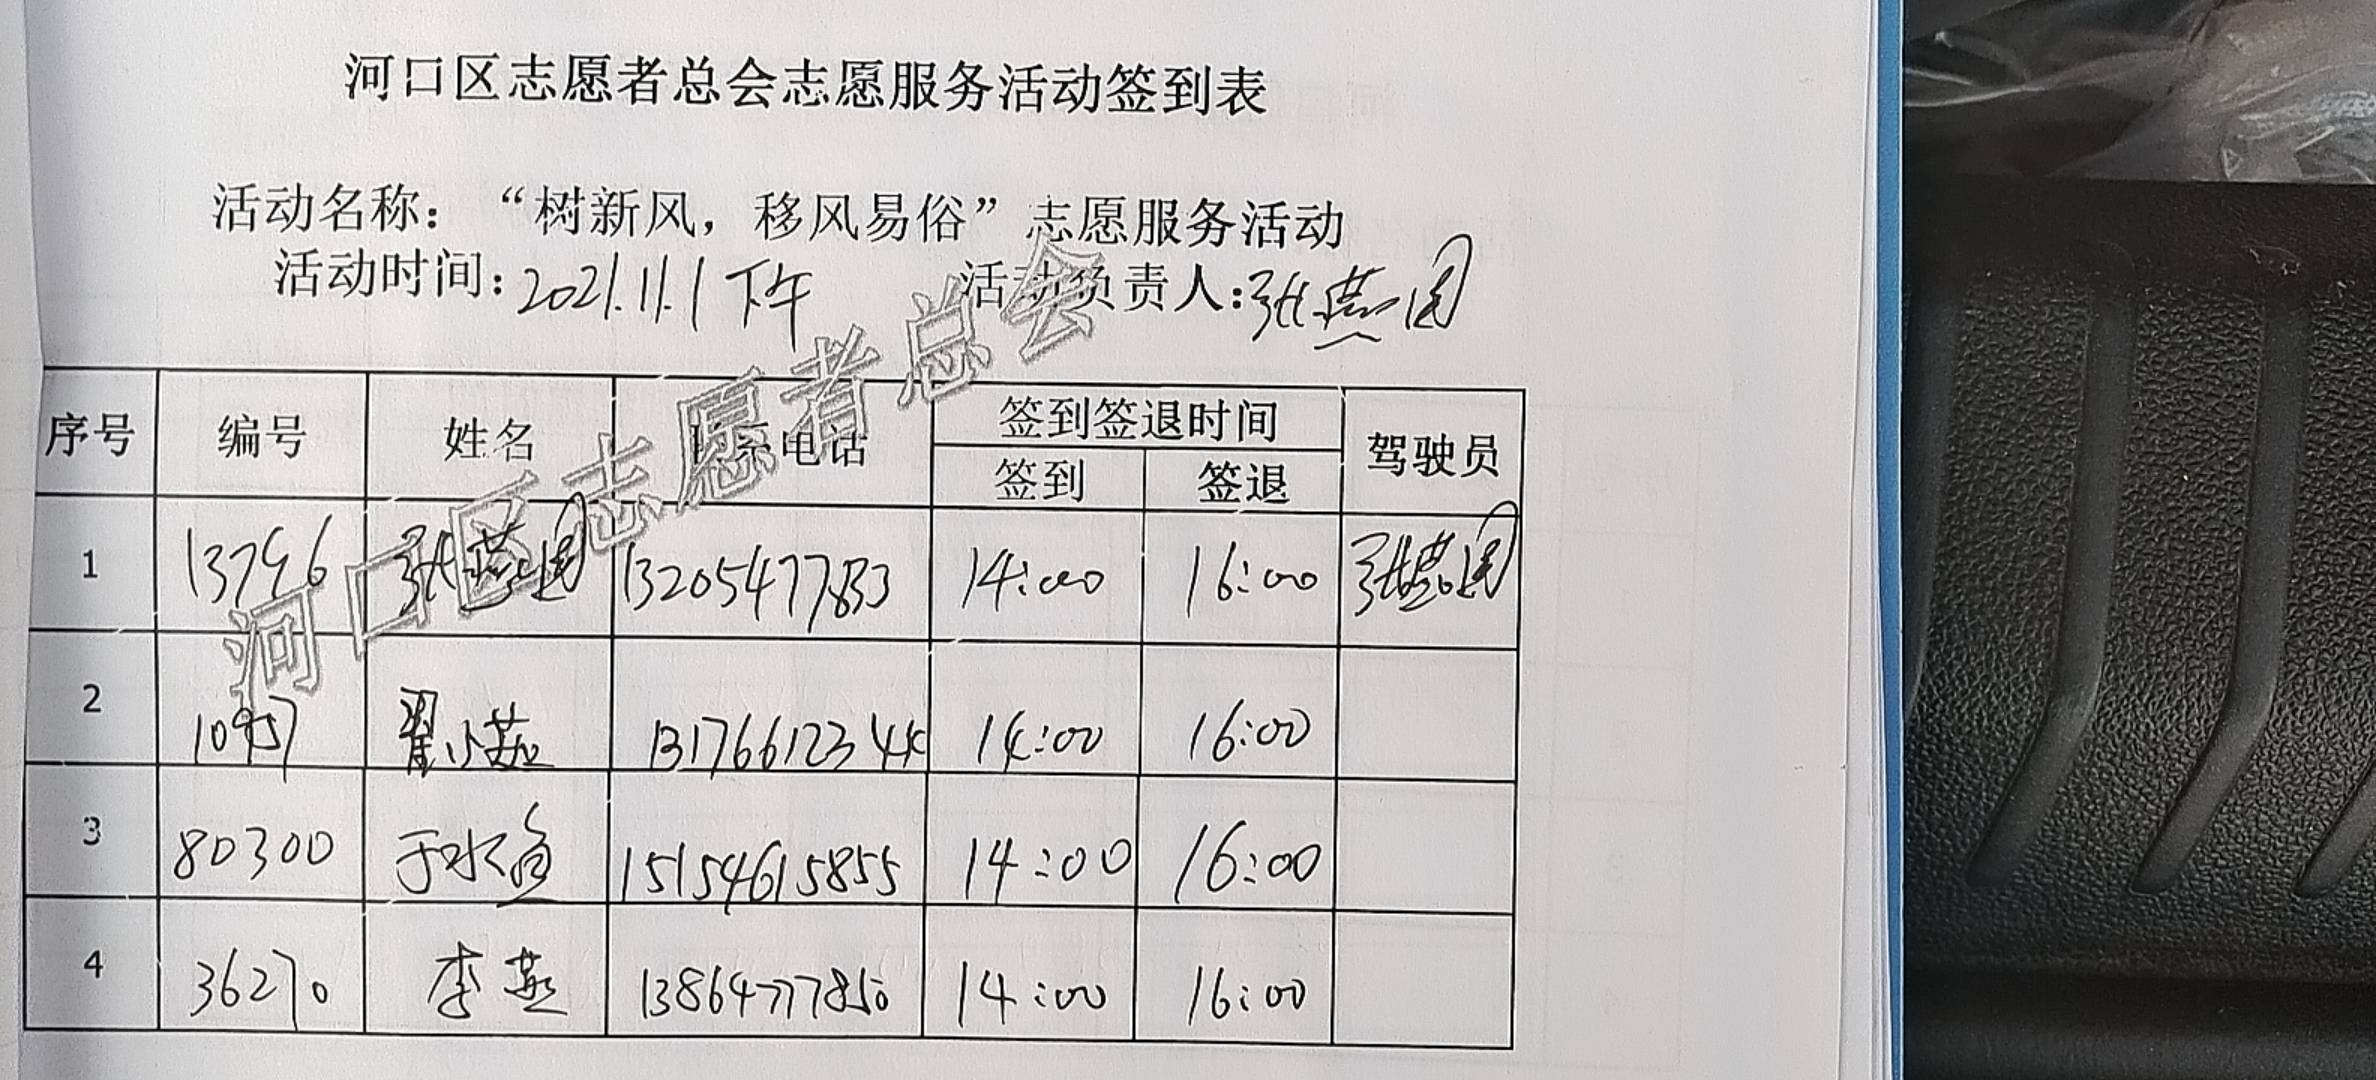 河口区志愿者总会志愿服务活动签到表
活动名称：“树新风，移风易俗”志愿服务活动
活动时间：2021.11.1下午 活动负责人：张燕团
序号 编号 姓名 联系电话 签到签退时间 驾驶员
签到 签退
1 13796 张燕团 13205477833 14:00 16:00 张燕团
2 10957 翟小茹 13176612344 14:00 16:00
3 80300 于水鱼 15154615855 14:00 16:00
4 36270 李燕 13864777850 14:00 16:00
河口区志愿者总会